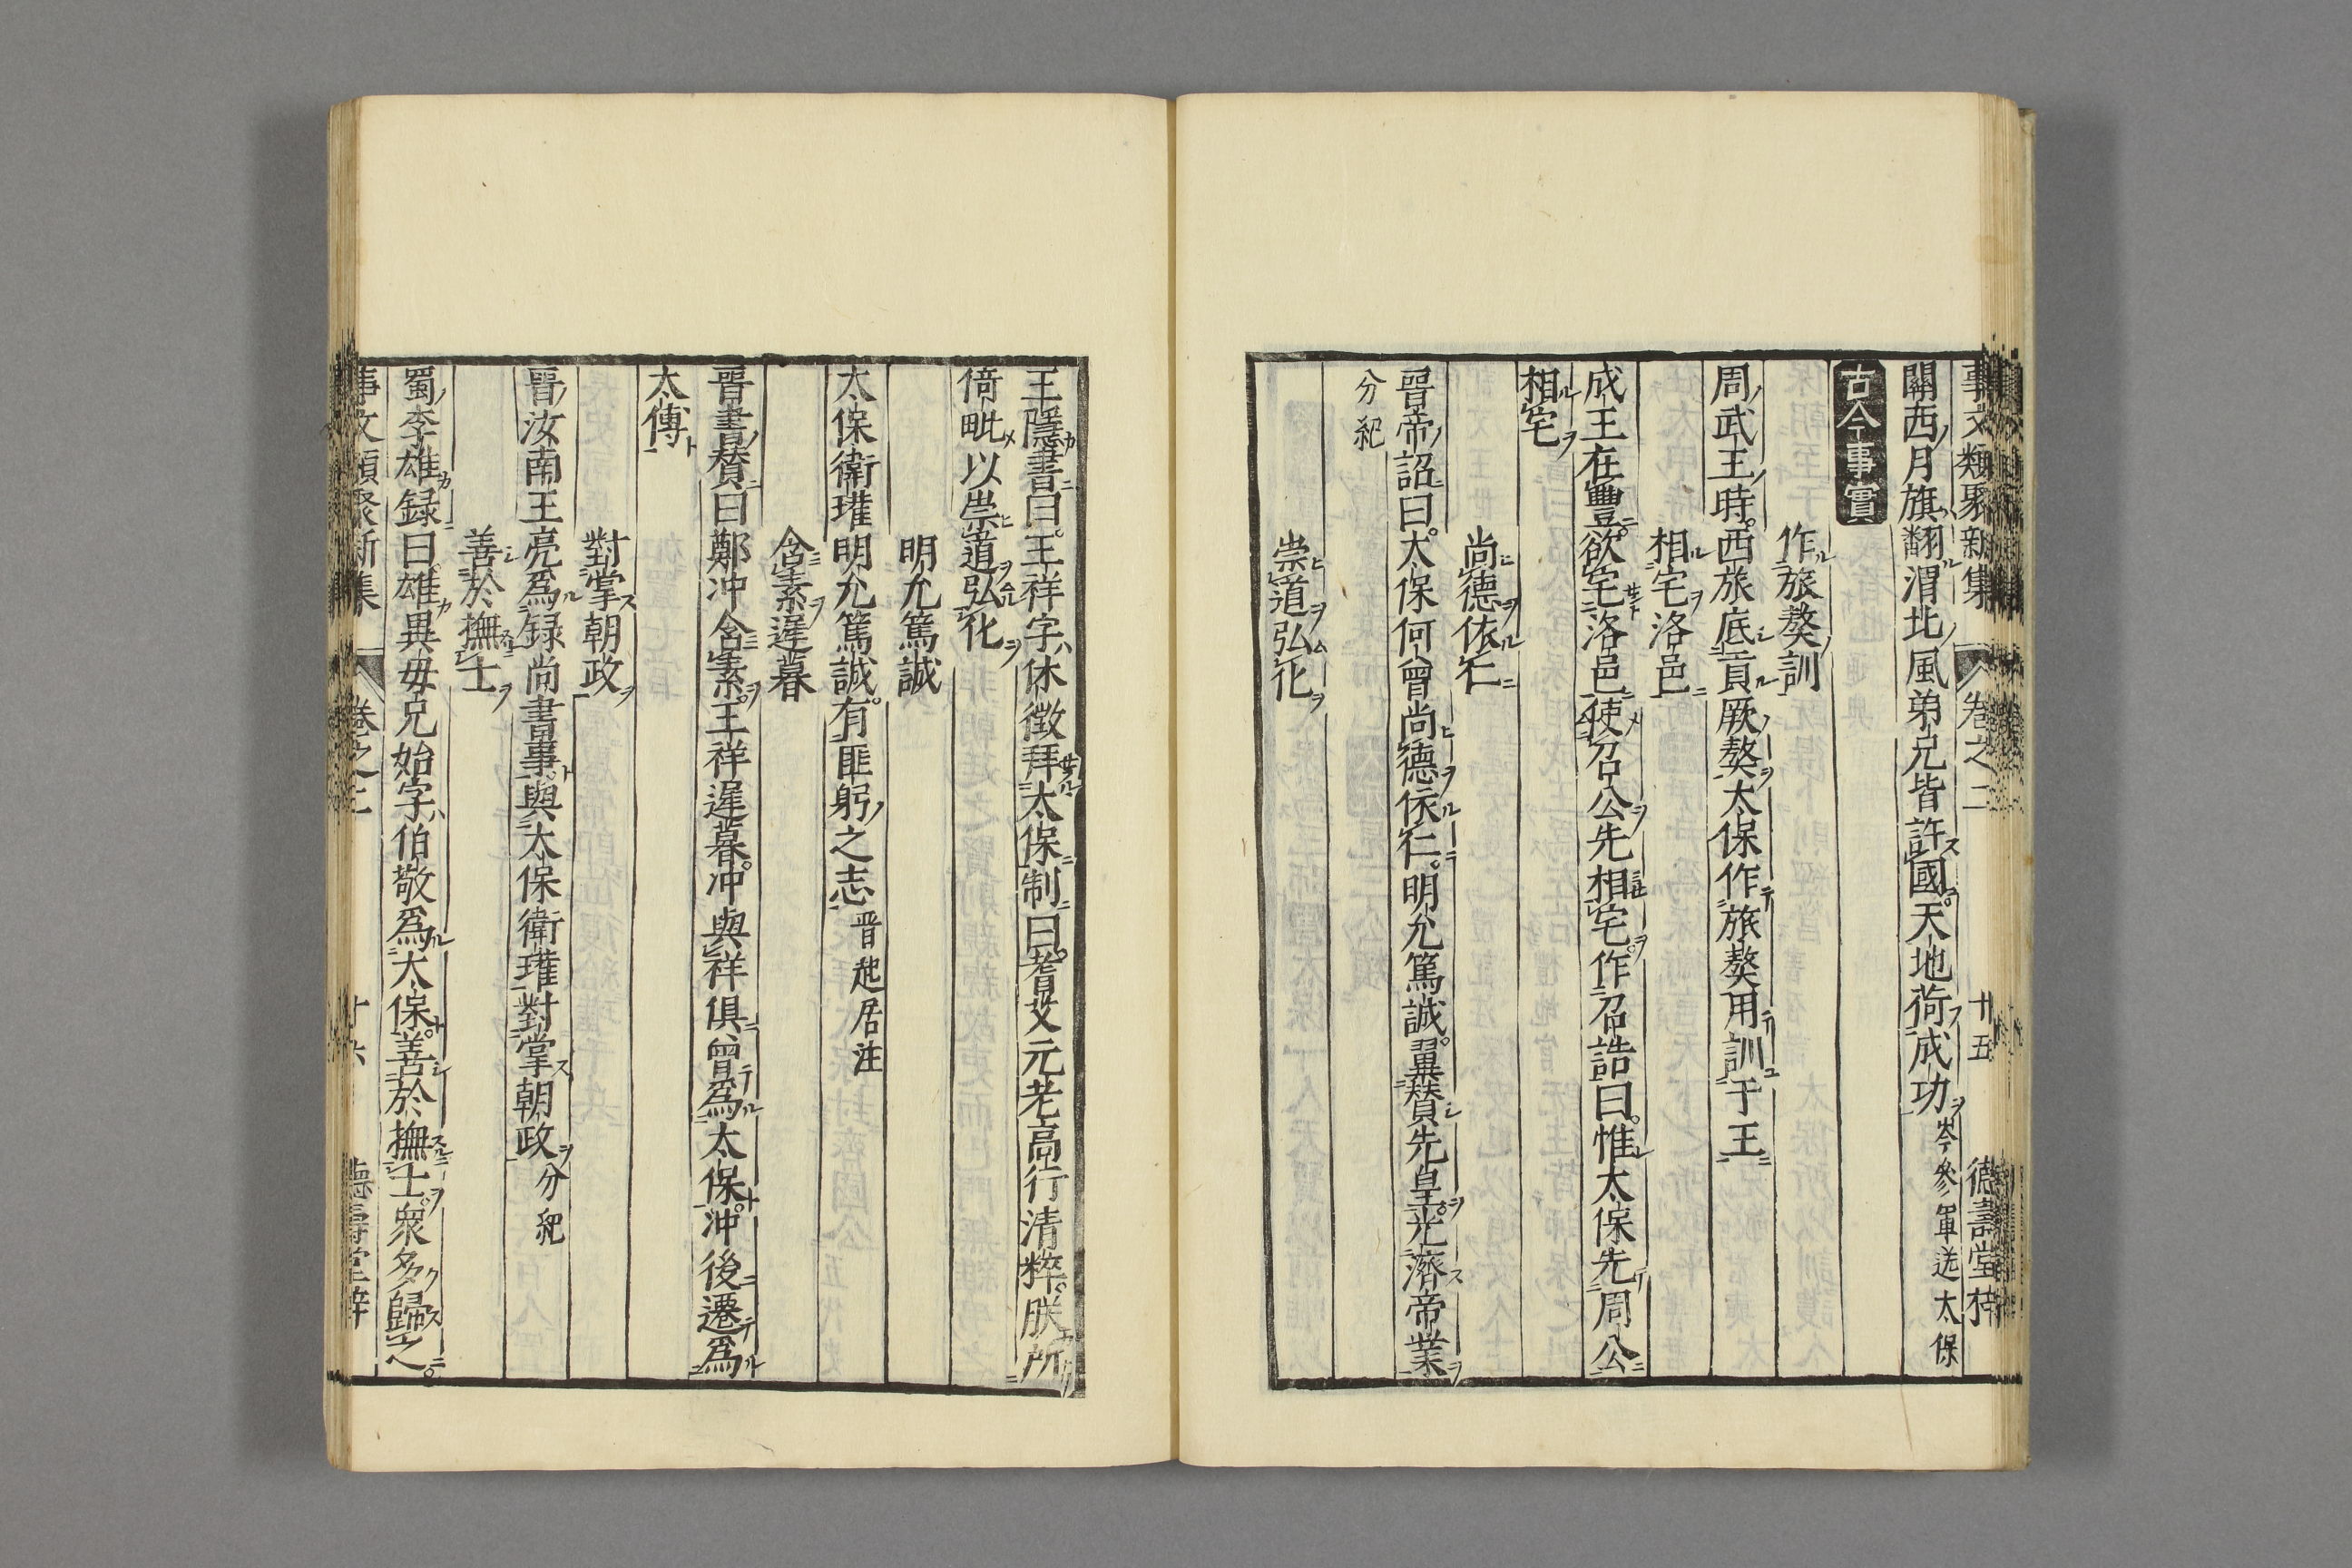 事文類聚新集 卷之二 廿五 德壽堂梓
關西月旗翻渭北風弟兄皆許國天地荷成功 岑參軍送太保
古今事實
作旅獒訓
周武王時西旅底貢厥獒太保作旅獒用訓于王
相宅洛邑
成王在豐欲宅洛邑使召公先相宅作召誥曰惟太保先周公
相宅
尚德依仁
晉帝詔曰太保何曾尚德依仁明允篤誠翼賛先皇光濟帝業
分紀
崇道弘化
王隱書曰王祥字休徵拜太保制曰耆艾元老高行清粹朕所
倚毗以崇道弘化
明允篤誠
太保衛瓘明允篤誠有匪躬之志 晉起居注
含素遲暮
晉書賛曰鄭冲含素王祥遲暮冲與祥俱曾爲太保冲後遷爲
太傅
對掌朝政
晉汝南王亮爲録尚書事與太保衛瓘對掌朝政 分紀
善於撫士
蜀李雄録曰雄異毋兄始字伯敬爲太保善於撫士衆多歸之
事文類聚新集 卷之二 廿六 德壽堂梓